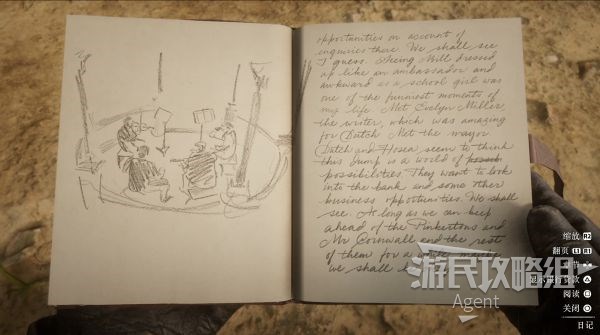 opportunities on account of
enquiries there. We shall see
I guess. Seeing Bill dressed
up like an ambassador and
awkward as a school girl was
one of the funniest moments of
my life. Met Evelyn Miller
the writer, which was amazing
for Dutch. Met the mayor
Dutch and Hosea seem to think
this dump is a world of
possibilities. They want to look
into the bank and some other
business opportunities. We shall
see. As long as we can keep
ahead of the Pinkertons and
Mr Cornwall and the rest
of them for a
we shall
缩放 R2
翻页 L1 R1
阅读
关闭
日记
游民攻略组
Agent